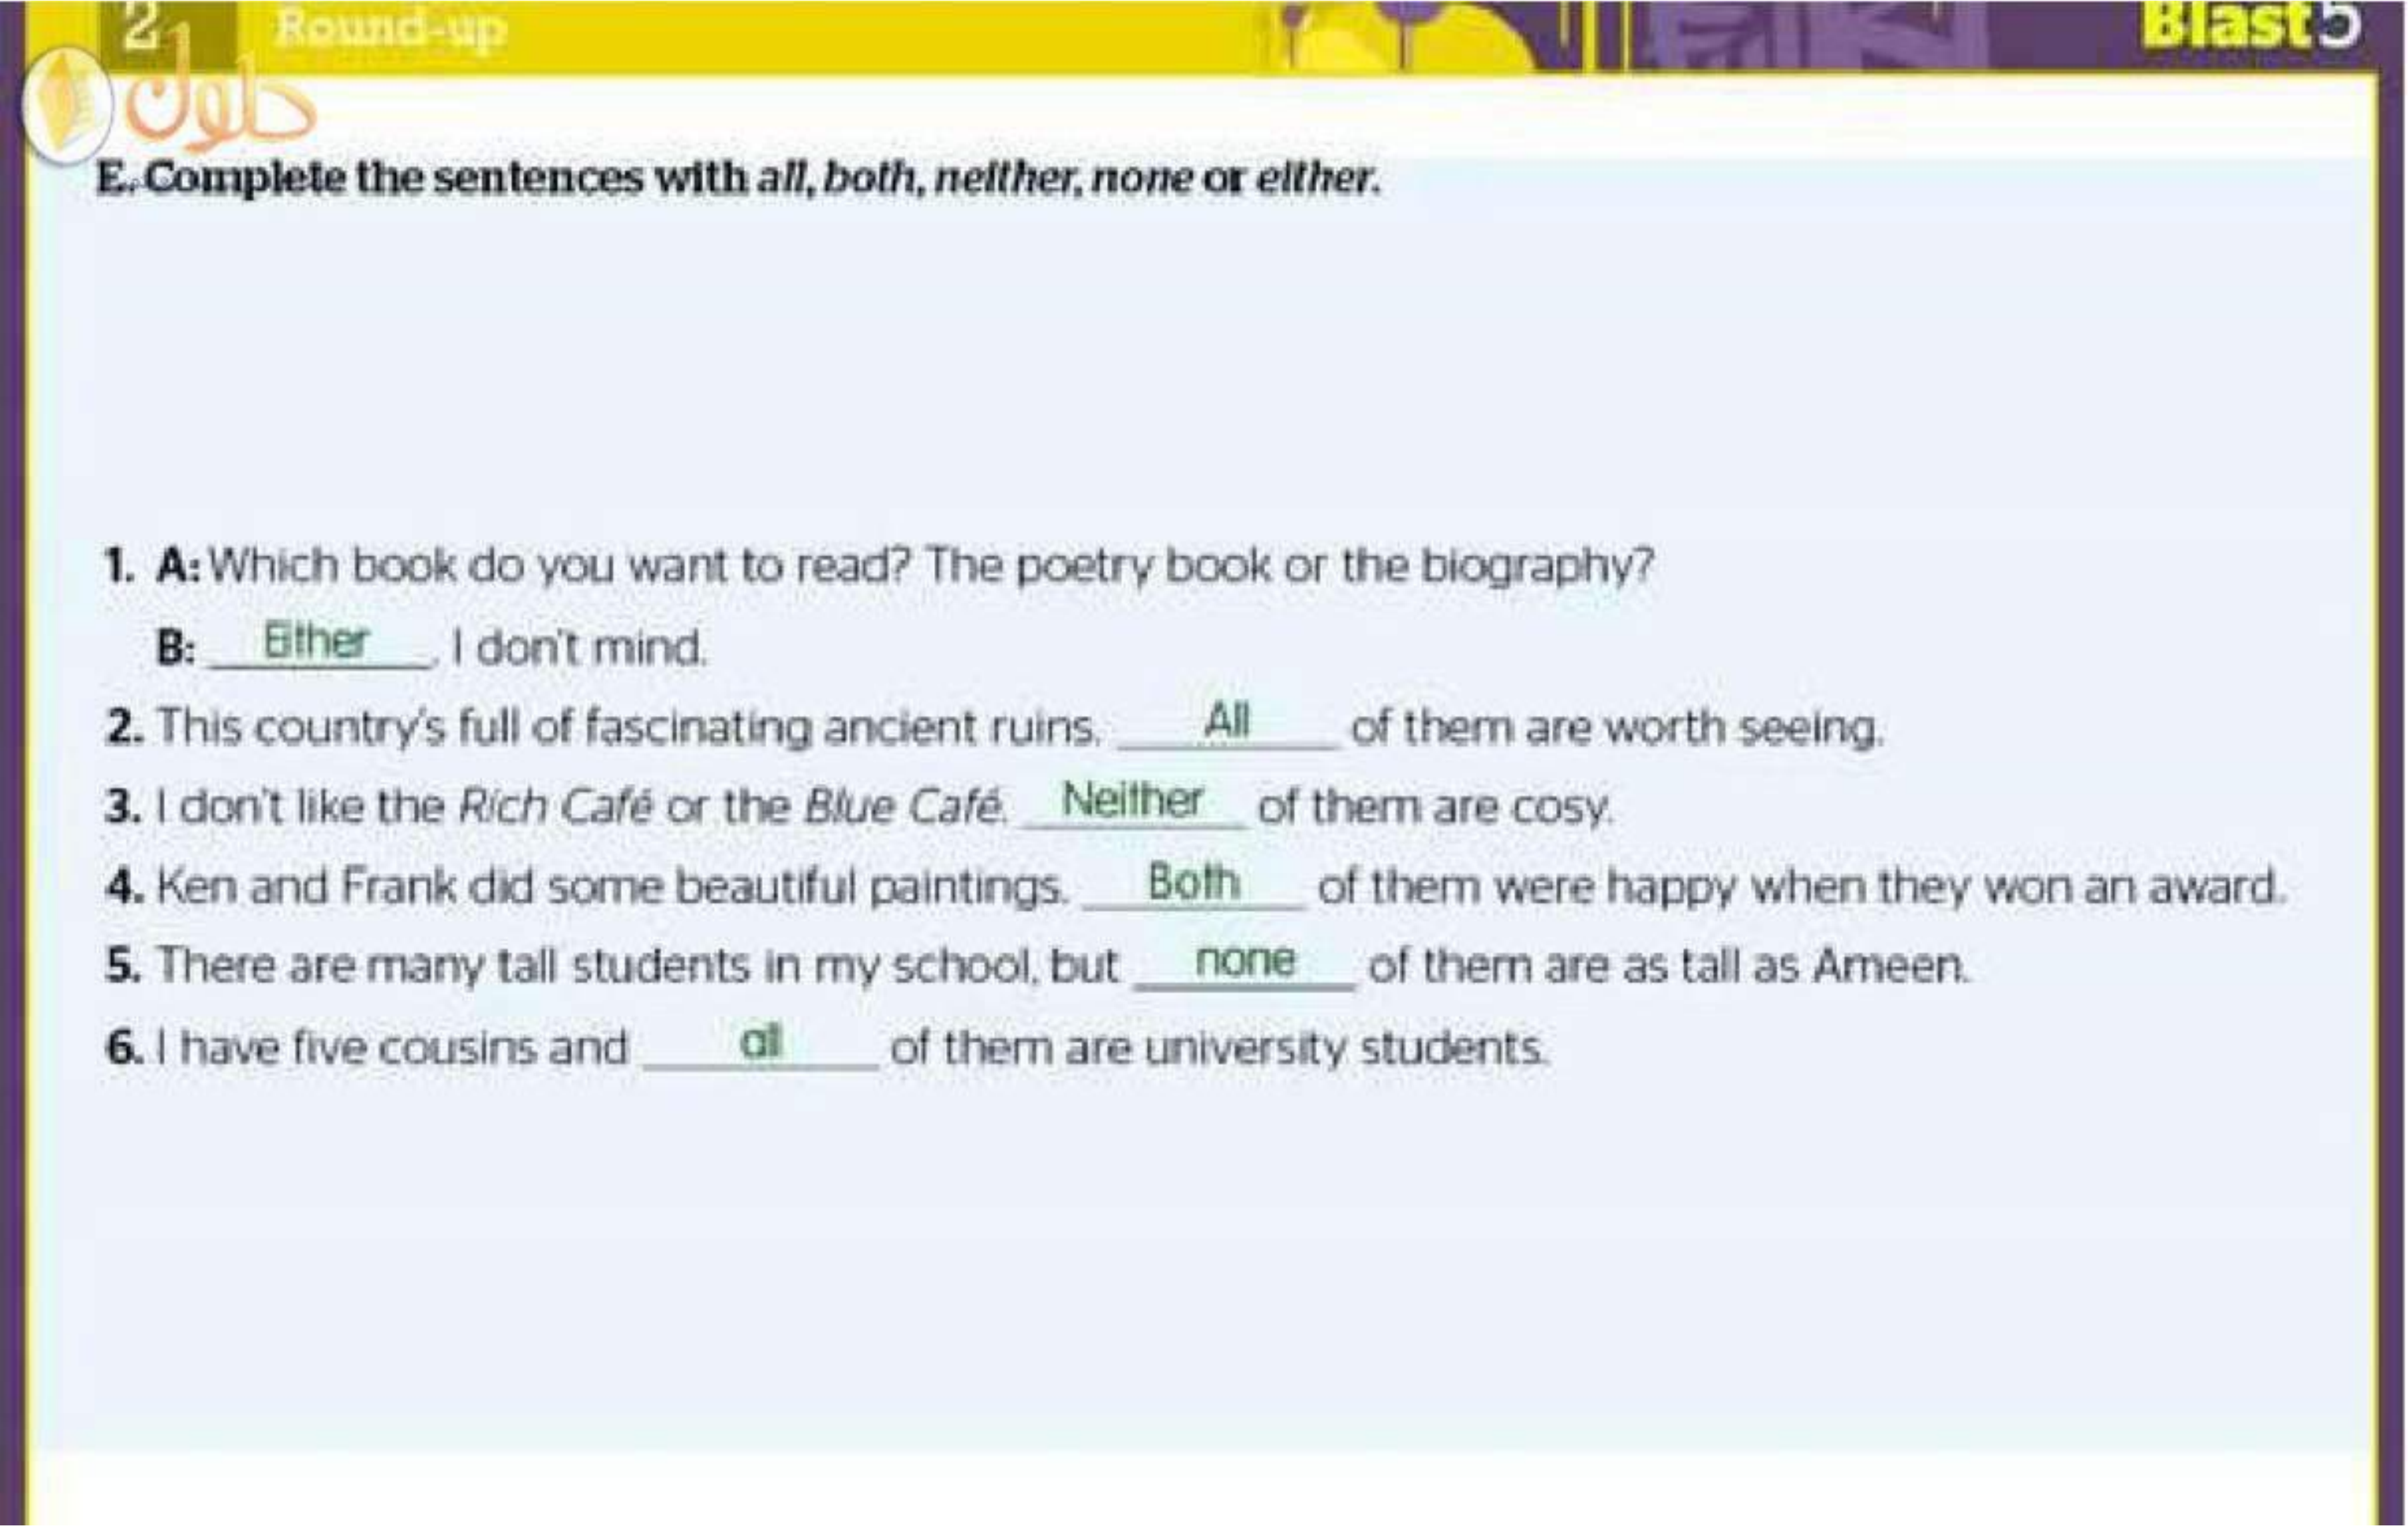 2 Round-up Blast5
حلول
E. Complete the sentences with all, both, neither, none or either.
1. A: Which book do you want to read? The poetry book or the biography?
B: Either. I don't mind.
2. This country's full of fascinating ancient ruins. All of them are worth seeing.
3. I don't like the Rich Café or the Blue Café. Neither of them are cosy.
4. Ken and Frank did some beautiful paintings. Both of them were happy when they won an award.
5. There are many tall students in my school, but none of them are as tall as Ameen.
6. I have five cousins and all of them are university students.